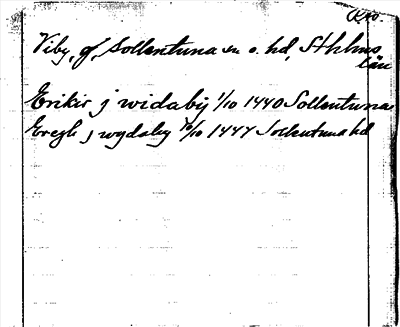 Viby, gd, Sollentuna sn o. hd, Sthlms
län
Erikir j widaby 1/10 1440 Sollentuna
j wydaby 10/10 1447 Sollentuna hd